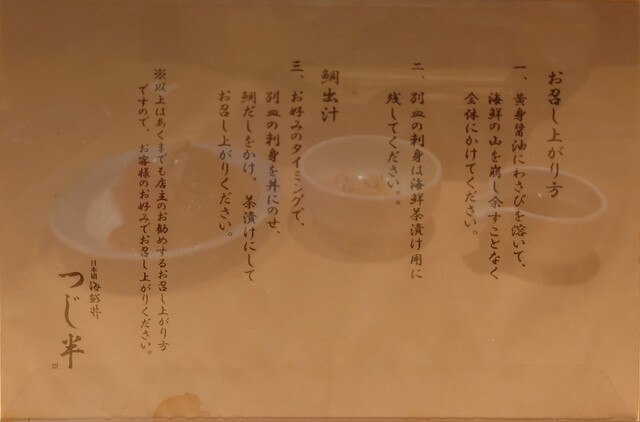 お召し上がり方
一、黄身醤油にわさびを溶いて、
海鮮の山を崩し余すことなく
全体にかけてください。
二、別皿の刺身は海鮮茶漬け用に
残してください。。
鯛出汁
三、お好みのタイミングで、
別皿の刺身を丼にのせ、
鯛だしをかけ、茶漬けにして
お召し上がりください。
※以上はあくまでも店主のお勧めするお召し上がり方
ですので、お客様のお好みでお召し上がりください。
日本橋海鮮丼
つじ半